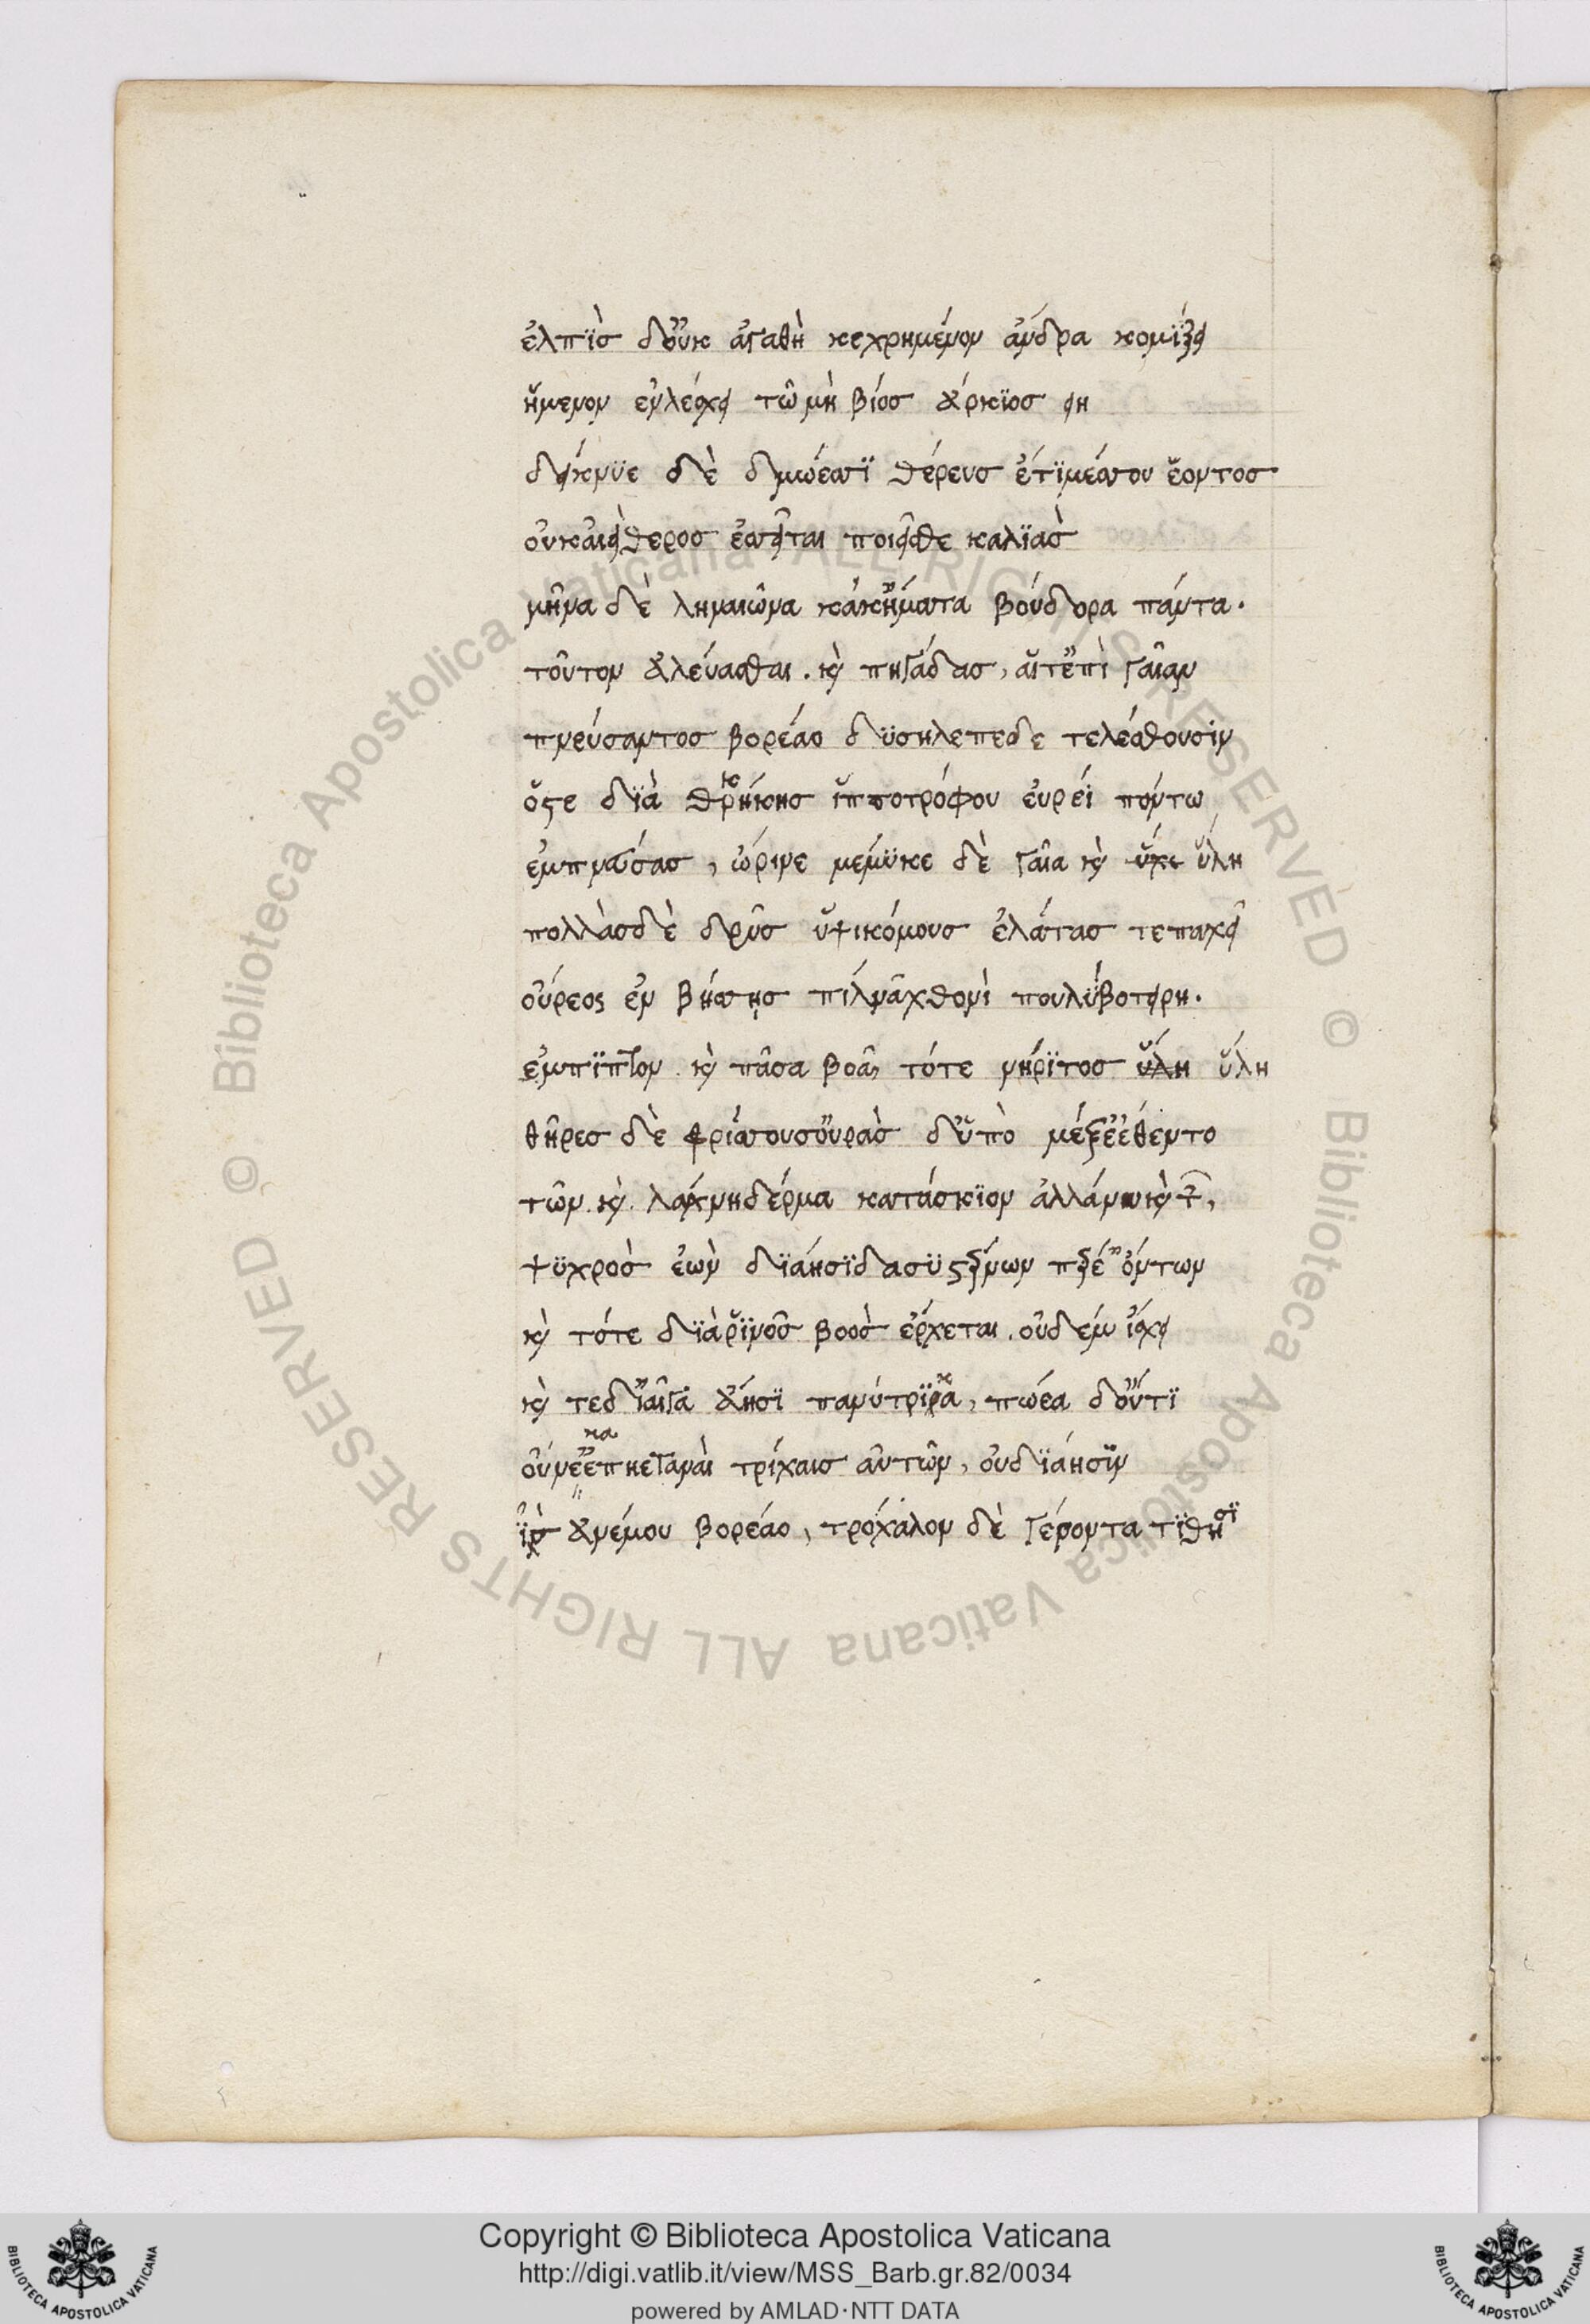 ἐλπϊὸσ δοὖκ ἀγαθὴ κεχρημένον ἄνδρα κομϊζει
ἥμενον ἐνλέσχει τῶ μὴ βίοσ ἄρκϊοσ ειη
δείκνϋε δὲ δμώεσσϊ θέρευσ ἔτϊμέσσου ἔοντοσ
οὐκἀιεὶθεροσ ἐσσεῖται ποιεῖσθε καλϊασ
μῆνα δὲ ληναιῶνα κάκἤματα βούδορα πάντα.
τοῦτον ἀλεύασθαι. κὶ πηγάδασ, αἵτἐπὶ γαῖαν
πνεύσαντοσ βορέαο δϋσηλεπεδε τελέσθουσὶν
ὅστε δϊὰ θρηίκησ ἵπποτρόφου ἐυρέϊ πόντω
ἐμπνσάσ, ὤρινε μεμϋκε δὲ γαῖα κὶ ὕλη
πολλὰσδὲ δρῦσ ὕψικόμουσ ἐλάτασ τεπαχεῖ
οὔρεοσ ἐν βήσσησ πιλνᾶχθονὶ πουλϋβοτειρη.
ἐμπϊπτον. κὶ πᾶσα βοᾶ, τότε νήρϊτοσ ὕλη
θῆρεσ δὲ φρίσσουσοὐρὰσ δὕπὸ μέζεἔθεντο
τῶν. κὶ. λάχνηδέρμα κατάσκϊον ἀλλάνυκὶ
ψϋχροσ ἐὼν δϊάησϊδασϋστέρνων περέὄντων
κὶ τότε δϊὰῥϊνοῦ βοοσ ἔρχεται. οὐδεμ ἴσχει
κὶ τεδϊαἶγα ἄησϊ τανύτρϊχα, πώεα δοὔτϊ
οὕνεἐπηεταναι τρίχαισ αὐτῶν, οὐδϊάησϊν
ϊσ ἀνέμου βορέαο, τρόχαλον δὲ γέροντα τϊθησϊ
Copyright © Biblioteca Apostolica Vaticana
http://digi.vatlib.it/view/MSS_Barb.gr.82/0034
powered by AMLAD·NTT DATA